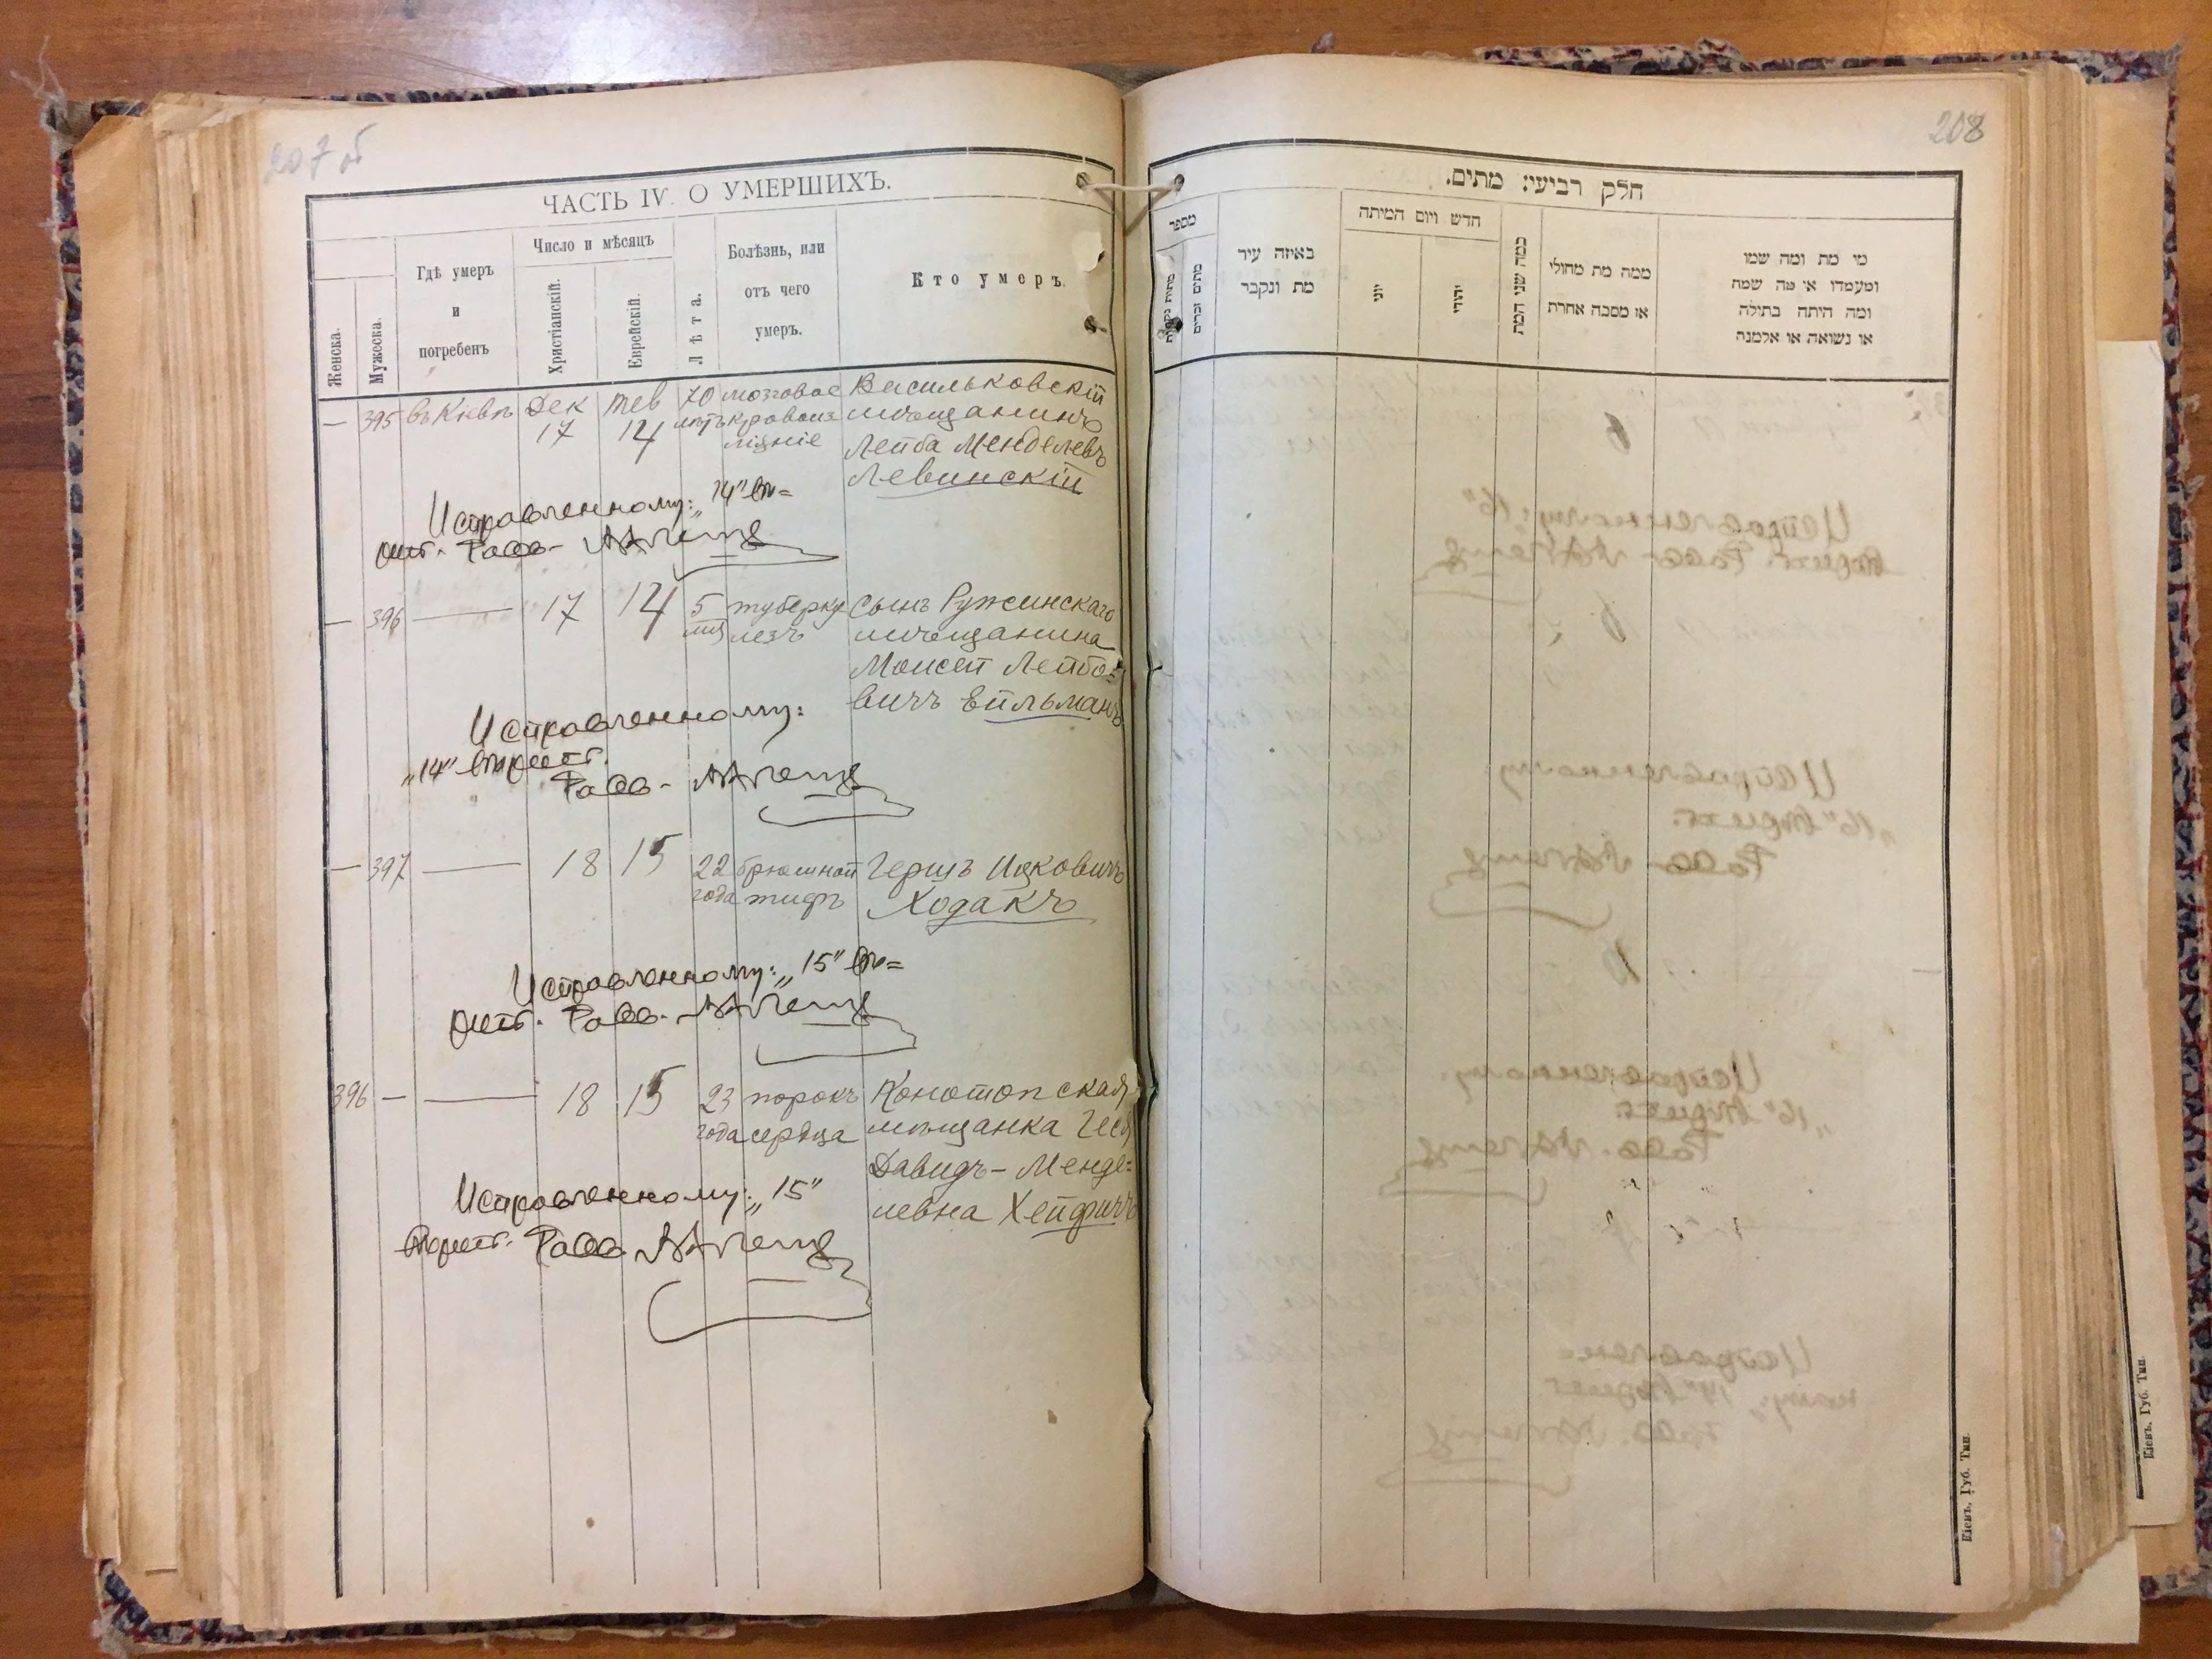 207 об
ЧАСТЬ IV. О УМЕРШИХЪ.
Женска.
Мужеска.
Гдѣ умеръ
и
погребенъ
Число и мѣсяцъ
Христіанскій.
Еврейскій.
Лѣта.
Болѣзнь, или
отъ чего
умеръ.
Кто умеръ.
— 395 въ Кіевѣ Дек Тев 70 мозговое Васильковскій
17 14 лѣтъ кровоиз мѣщанинъ
ліяніе Лейба Менделевъ
Левинскій
Исправленному: „14" вѣ=
рить. Равв.
— 396 — 17 14 5 туберку Сынъ Ружинскаго
мѣс лезъ мѣщанина
Моисей Лейбо=
вичъ Ейльманъ
Исправленному:
„14" вѣрить.
Равв.
— 397 — 18 15 22 брюшной Гершъ Ицковичъ
года тифъ Ходакъ
Исправленному: „15" вѣ=
рить. Равв.
396 — — 18 15 23 порокъ Конотопская
года сердца мѣщанка Геся
Давидъ-Менде=
левна Хейфицъ
Исправленному: „15"
вѣрить. Равв.
208
חלק רביעי: מתים.
מספר
מתים זכרים
באיזה עיר
מת ונקבר
חדש ויום המיתה
יוני
יהודי
כמה שני המת
ממה מת מחולי
או מסבה אחרת
מי מת ומה שמו
ומעמדו או מה שמה
ומה היתה בתולה
או נשואה או אלמנה
Кіевъ, Губ. Тип.
Кіевъ, Губ. Тип.